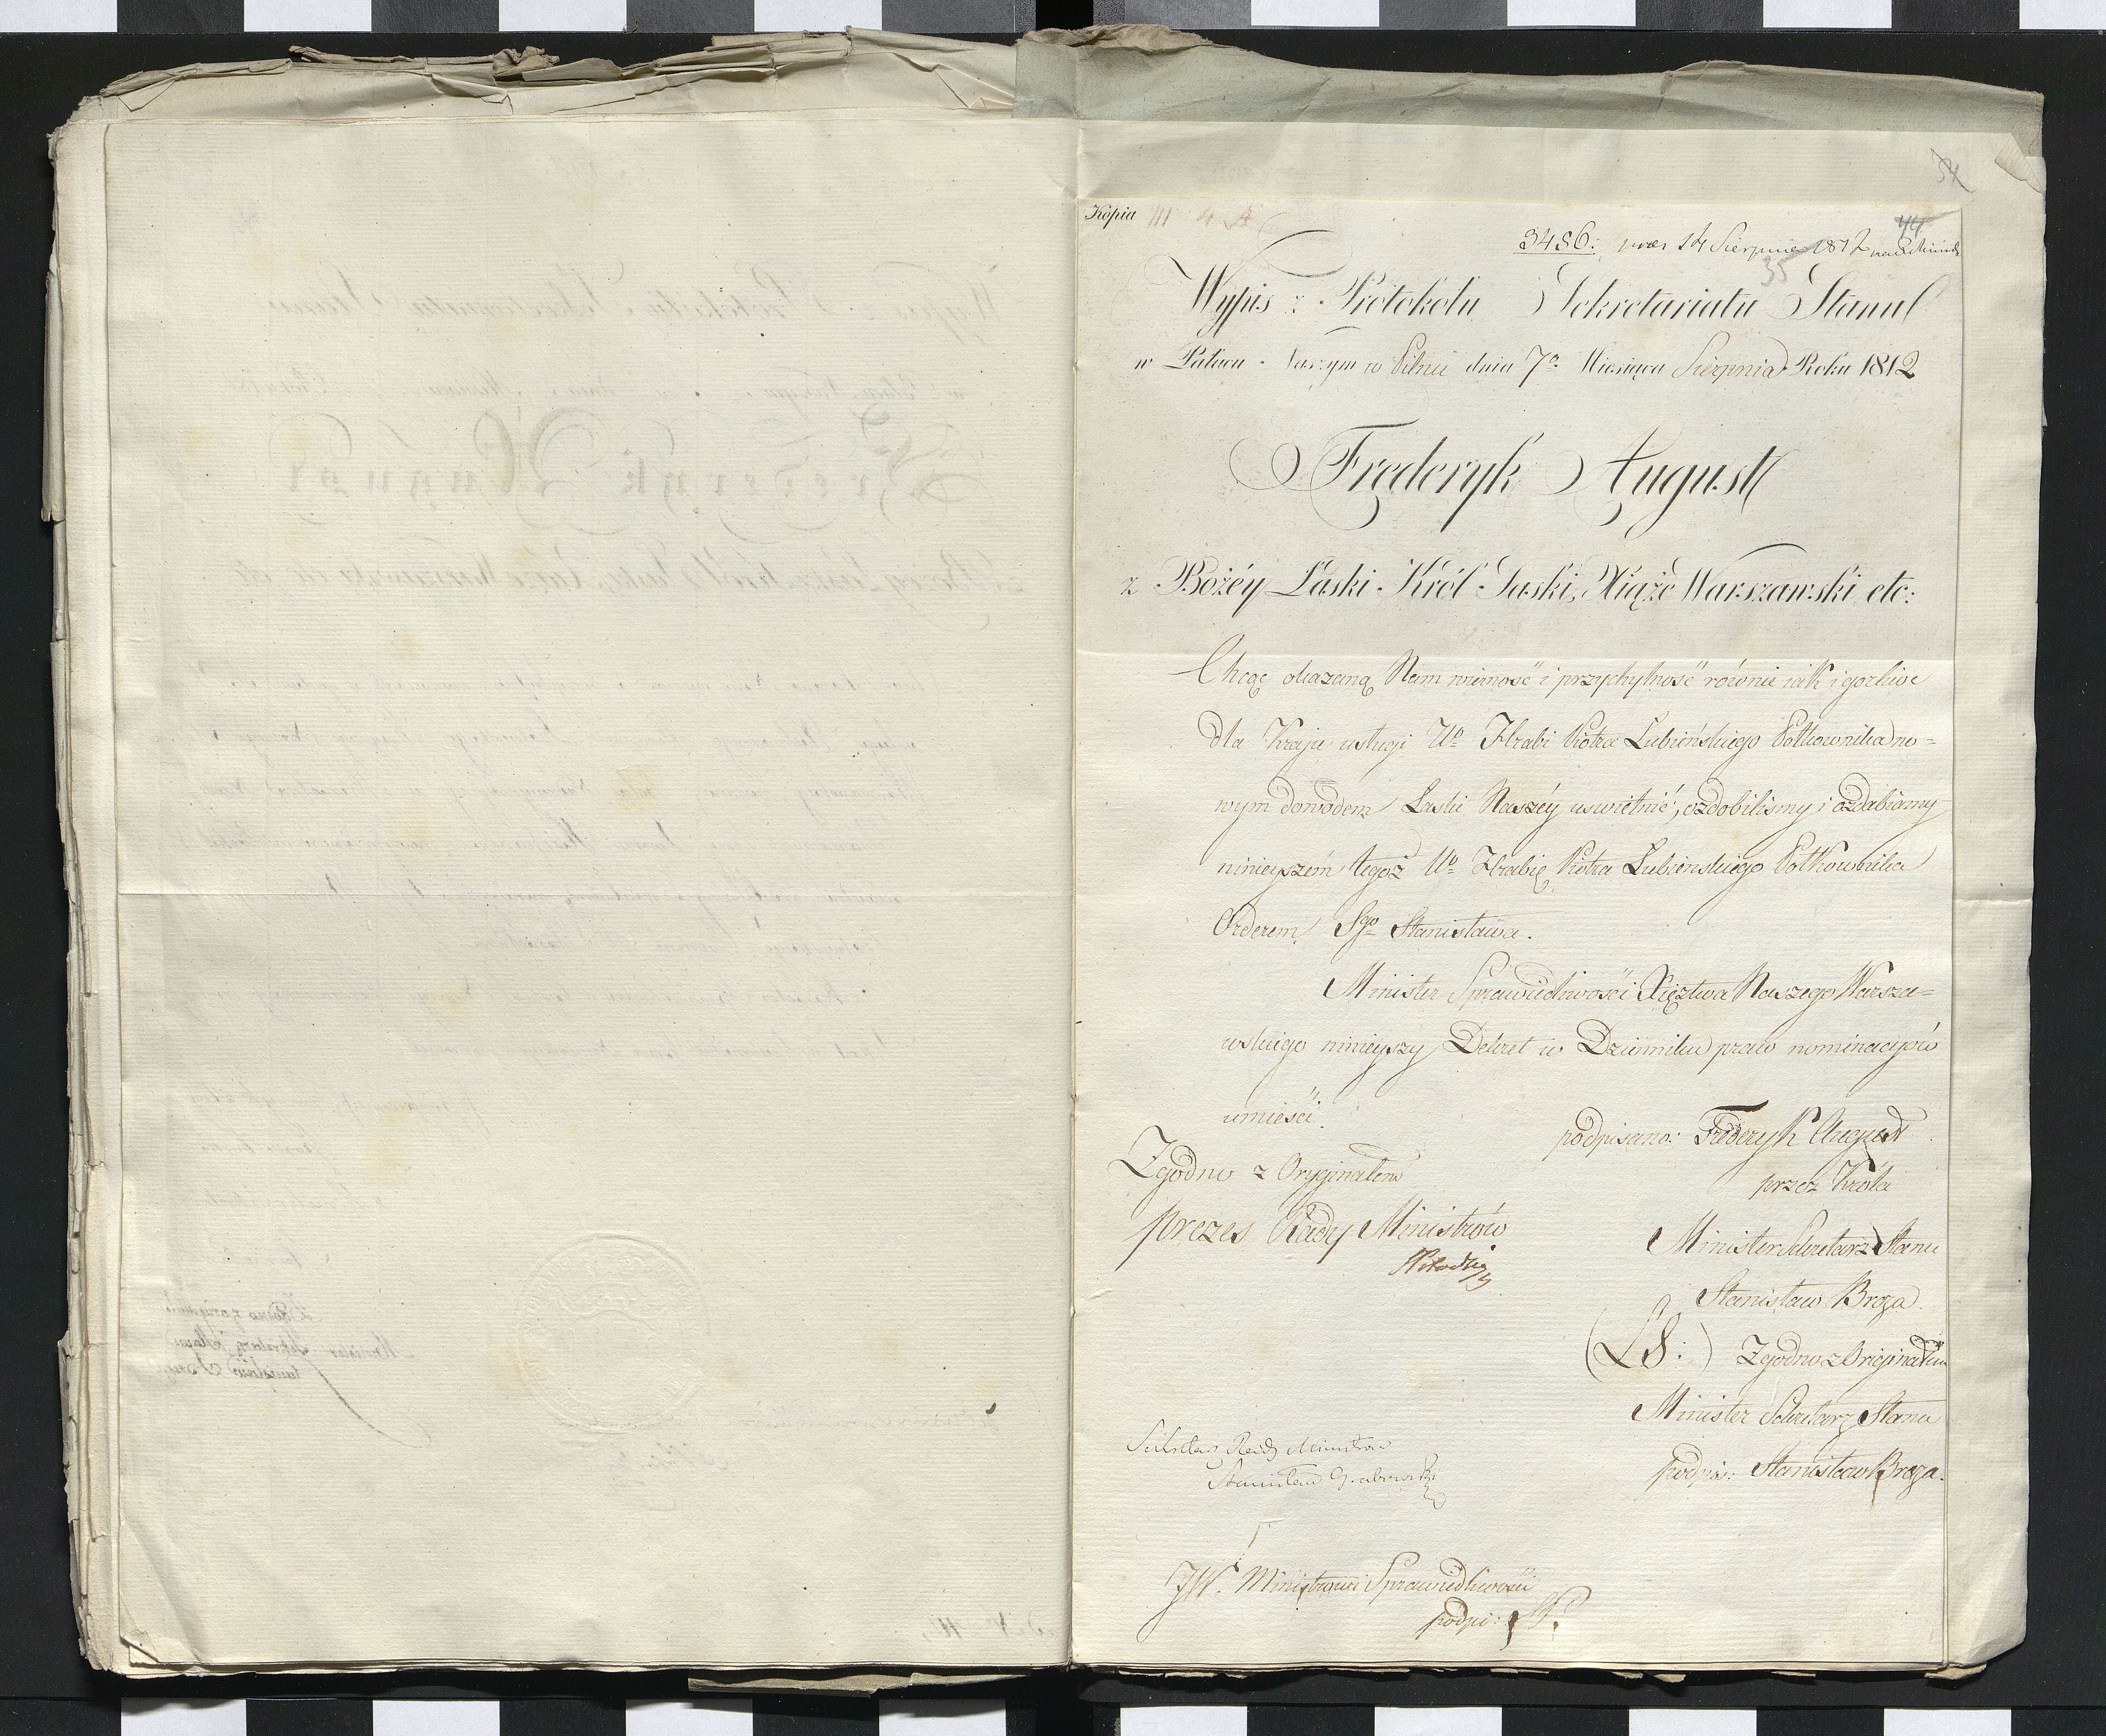 Kopia III 4 A
34
44
3486: praes 14 Sierpnia 1812
35
Wypis z Protokołu Sekretariatu Stanu
w Pałacu Naszym w Pilnic dnia 7º Miesiąca Sierpnia Roku 1812
Frederyk August
z Bożéy Łaski Król Saski, Xiąże Warszawski etc:
Chcąc okazaną Nam wierność i przychylność równie iak i gorliwe
dla Kraju usługi Uº Hrabi Piotra Łubieńskiego Połkownika no=
wym dowodem Łaski Naszéy uswietnić, ozdobilismy i ozdabiamy
ninieyszém tegoż Uº Hrabię Piotra Łubienskiego Połkownika
Orderem Sgo Stanisława.
Minister Sprawiedliwości Xięztwa Naszego Warsza=
wskiego ninieyszy Dekret w Dzienniku praw nominacyów
umieści.
podpisano: Frederyk August
przez Króla
Zgodno z Oryginałem
prezes Rady Ministrów
Minister Sekretarz Stanu
Stanisław Breza.
(LS:) Zgodno z Originałem
Minister Sekretarz Stanu
podpis: Stanisław Breza.
Sekretarz Rady Ministrów
Stanisław Grabowski
JW. Ministrowi Sprawiedliwości
podpi: